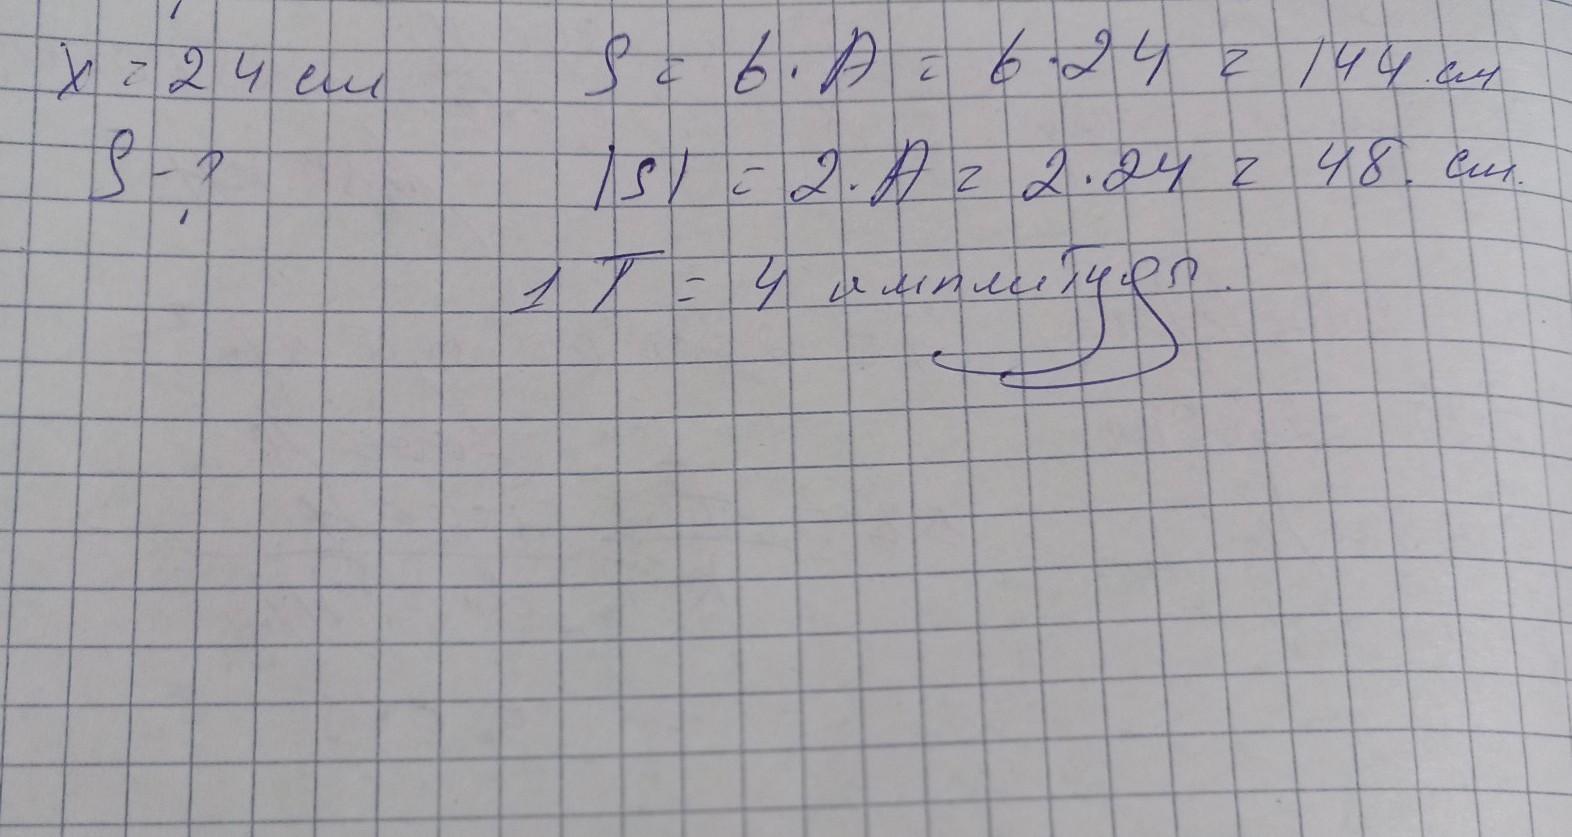 x = 24 см
S = 6 · A = 6 · 24 = 144 см
S - ?
|S| = 2 · A = 2 · 24 = 48. см.
1 T = 4 амплитуды.